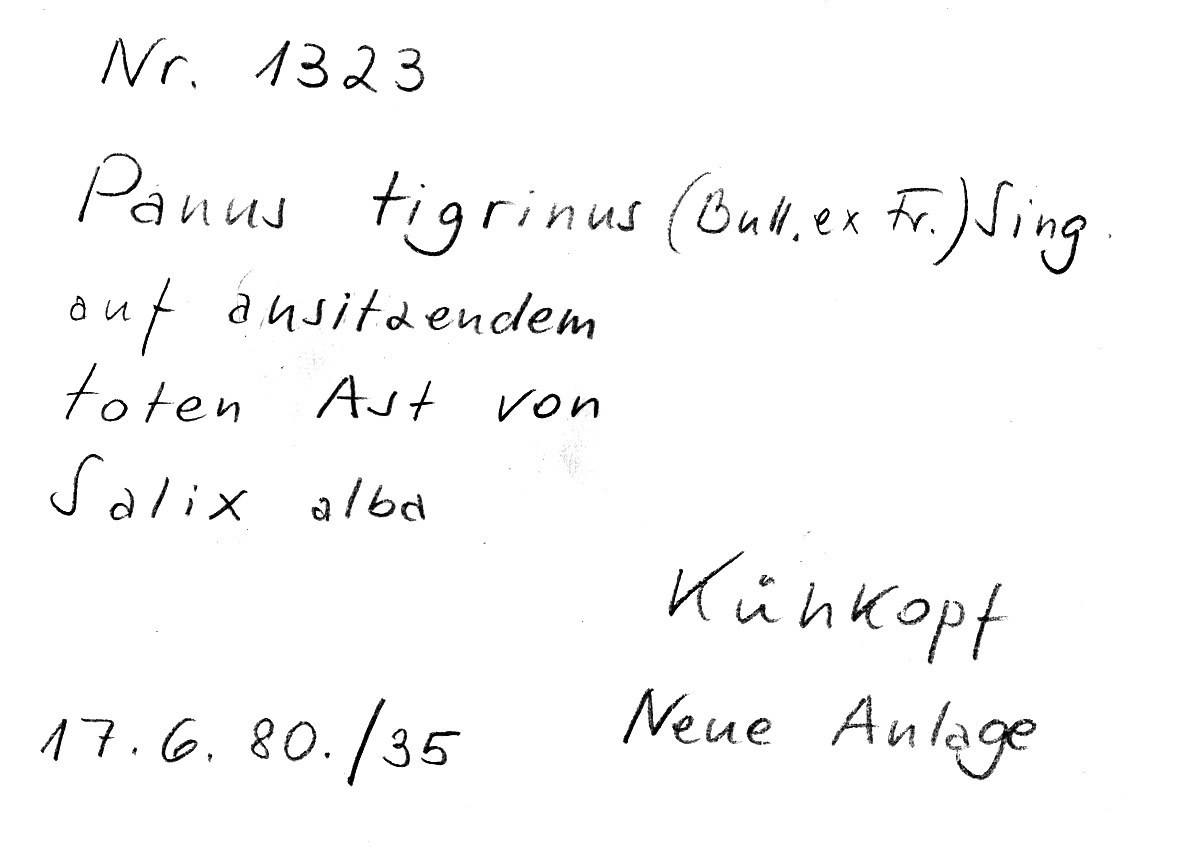 Nr. 1323
Panus tigrinus (Bull. ex Fr.) Sing.
auf ansitzendem
toten Ast von
Salix alba
Kühkopf
Neue Anlage
17.6.80./35